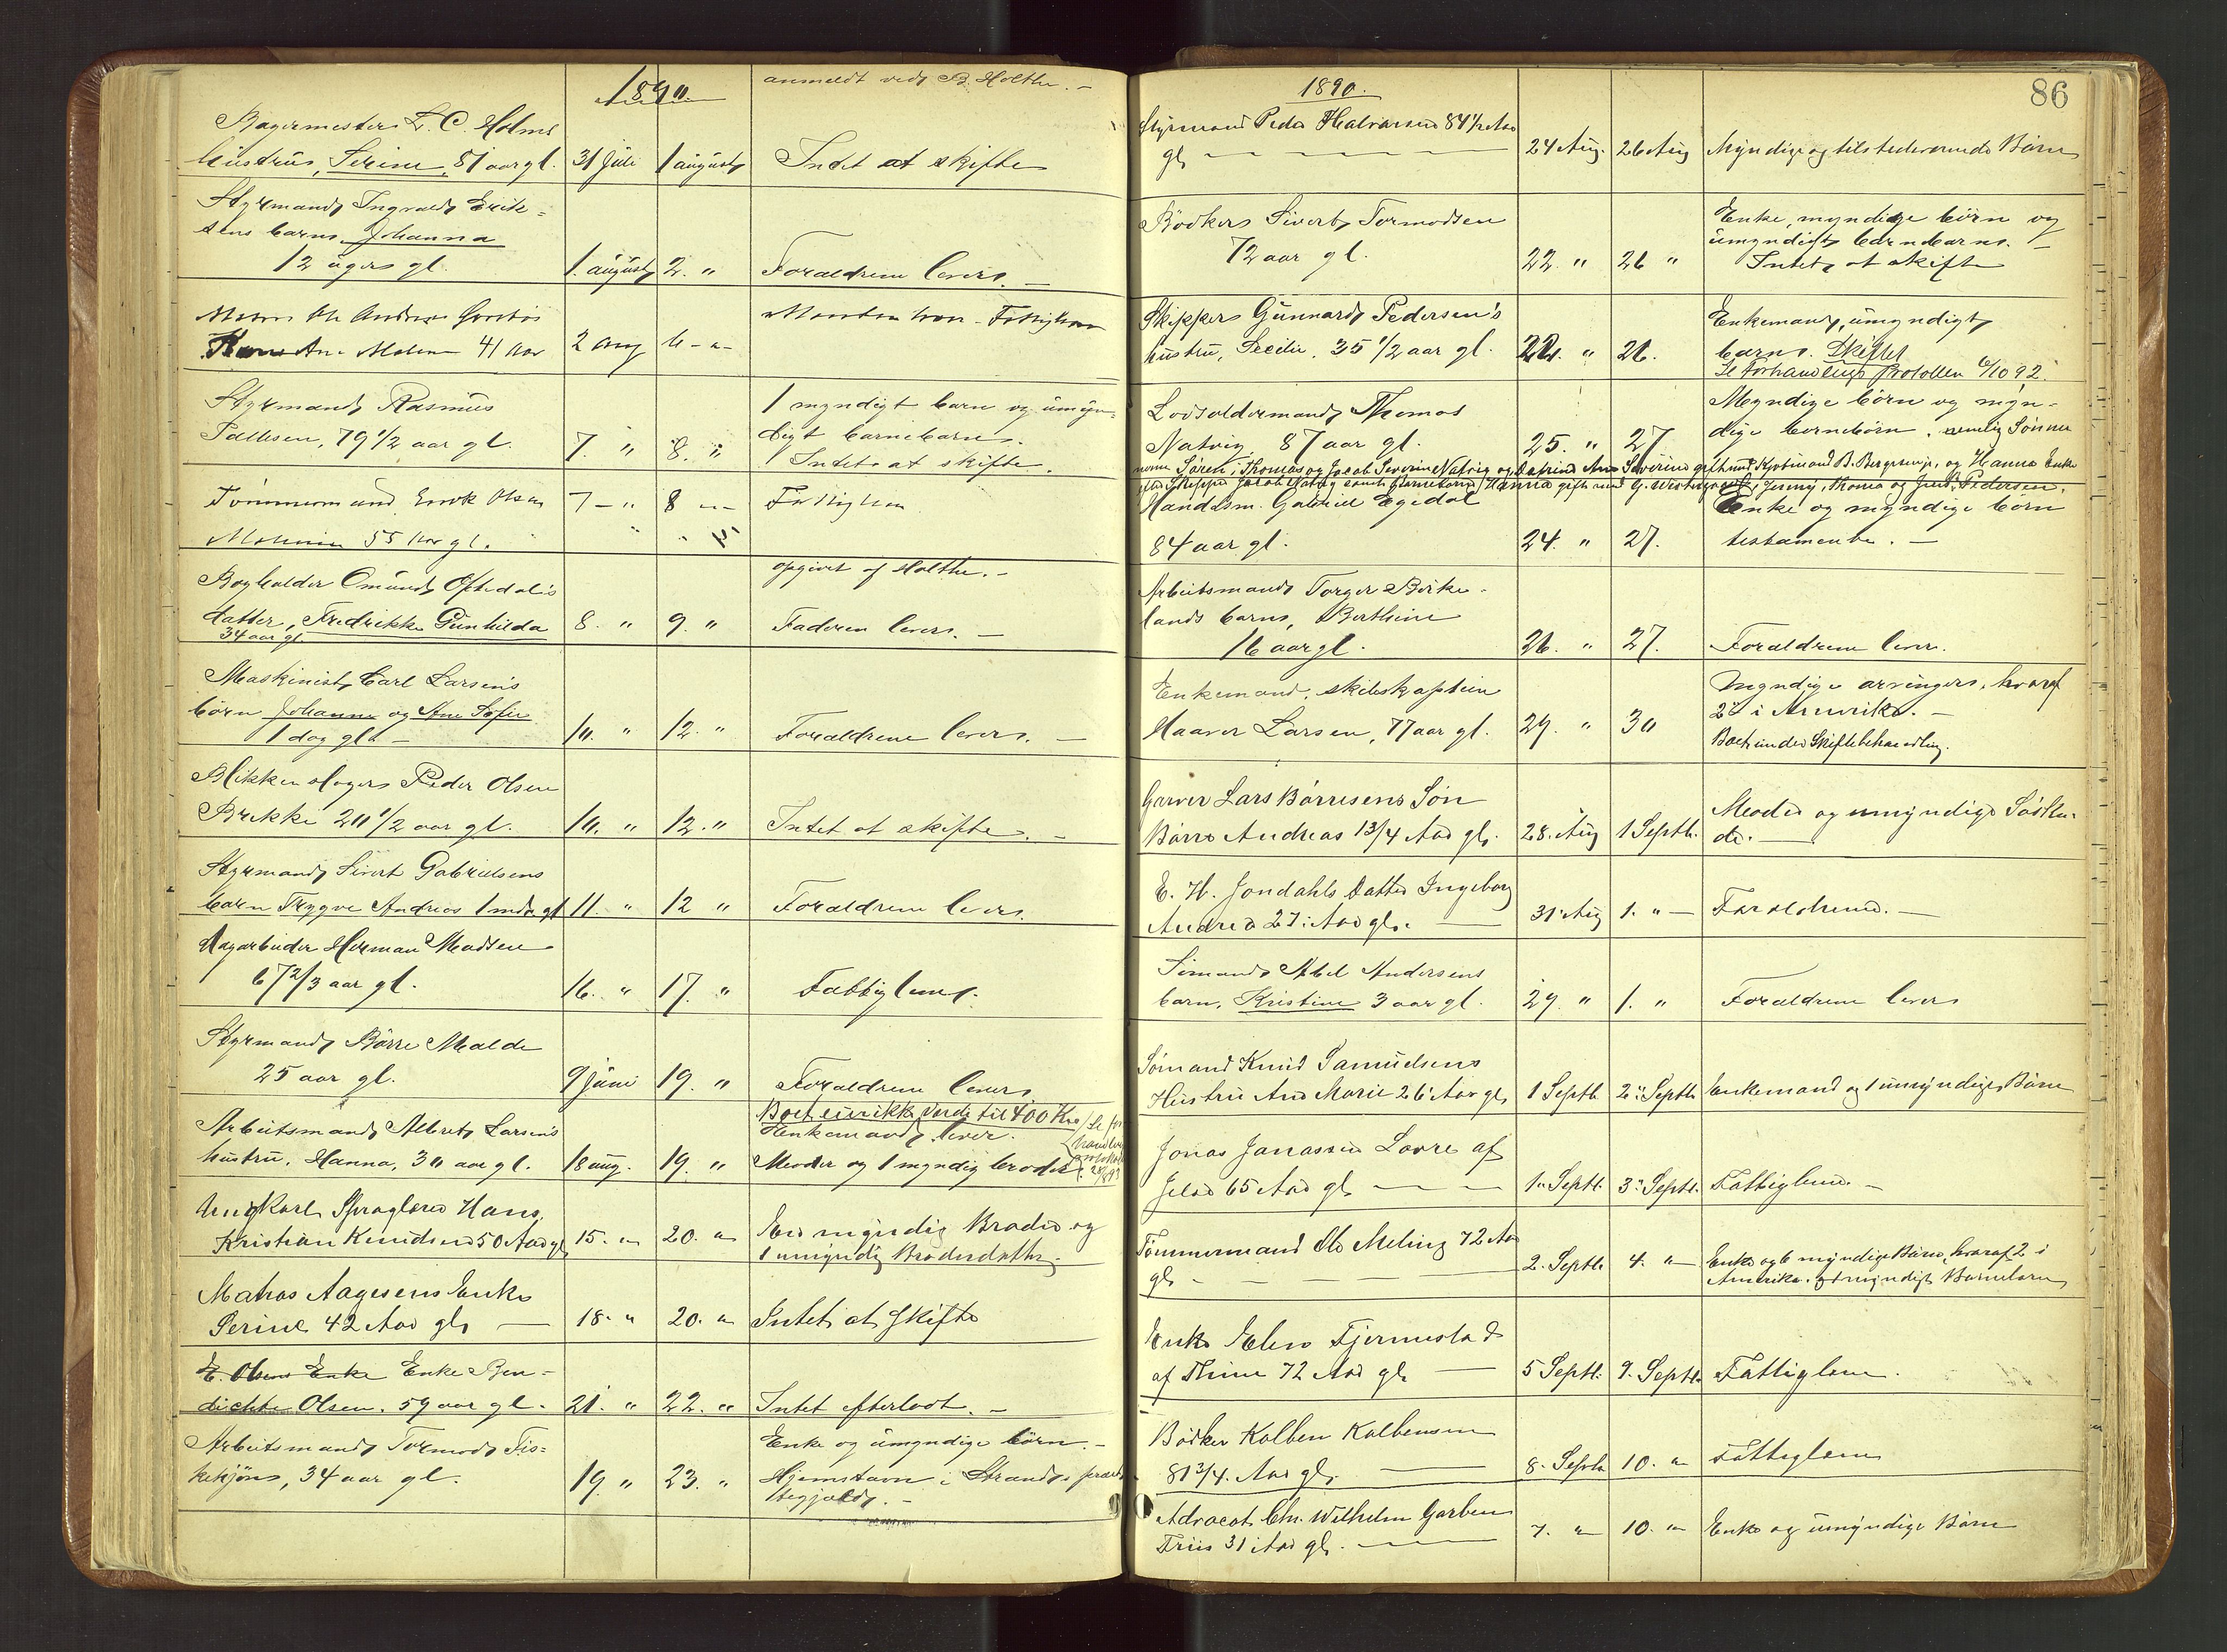 1890.
anmeldt ved B. Holthe. -
Bagermester L. C. Holms
hustru, Serine, 51 aar gl. 31 Juli 1 august Intet at skifte
Styrmand Ingvald Erik-
sens barn Johanna
12 uger gl. 1. august 2. " Foraldrene lever. -
41 Aar 2 aug 6 - " -
Styrmand Rasmus
Pallesen, 79 1/2 aar gl. 7. " 8. "
1 myndigt barn og umyn-
digt barnebarn.
Intet at skifte.
Tømmermand Enok Olsen 7 - " 8 - " - Fattiglem
55 Aar gl.
opgivet af Holthe. -
Bogholder Omund Oftedal's
datter, Fredrikke Gunhilda 8. " 9. " Faderen lever. -
34 aar gl
Maskinist Carl Larsen's
børn Johanne og Ane Sofie
1 dag gl. - 10. " 12. " Foraldrene lever. -
Blikkenslager Peder Olsen
Brekke 20 1/2 aar gl. 10. " 12. " Intet at skifte. -
Styrmand Sivert Gabrielsens
barn Trygve Andreas 1 md gl 11. " 12 " Foraldrene lever.
Herman Madsen
67 2/3 aar gl. 16. " 17. " Fattiglem.
Styrmand Børre Malde
25 aar gl. 9 juni 19. " Foraldrene lever
Boet ei værd til 400 Kr
Enkemand lever.
Arbeidsmand Albert Larsen's
hustru, Hanna, 30 aar gl. 18 aug. 19. " Moder og 1 myndig broder
Ungkarl Hans
Kristian Knudsen 50 Aar gl 15. " 20. " En myndig Broder og
1 umyndig Broderdatter.
Matros Aagesens Enke
Serine 42 Aar gl. - 18. " 20. " Intet at Skifte
E. Olsens Enke Enke Ben-
dichte Olsen, 59 aar gl. 21. " 22. " Intet efterladt. -
Arbeidsmand Tormod Fis-
kekjøn, 34 aar gl. 19. " 23. "
Enke og umyndige børn. -
Hjemstavn i Strands præste
gjeld. -
86
1890.
Styrmand Peder Halvorsen 84 1/2 Aar
gl. 24 Aug. 26 Aug Myndige og tilstedeværende Børn
Bødker Sivert Tormodsen
72 aar gl. 22. " 26 "
Enke, myndige børn og
umyndigt barnebarn. -
Intet at skifte
Skipper Gunnard Pedersen's
hustru, Secilie, 35 1/2 aar gl. 22. " 26.
Enkemand, umyndigt
barn. Skiftet
Se Forhandlings Protokollen 6/10 92.
Lodsoldermand Thomas
Natvig 87 aar gl. 25. " 27.
Myndige børn og myn-
dige børnebørn, nemlig Sønner
Søren, Thomas og Jacob Severin Natvig og Ane Severine gift med Kjøbmand B. Bergesen, og Hanna Enke
efter Skipper Jacob Natvig samt Børnebørn Hanna gift med G. Jenny, Thomas og Pedersen.
Handelsm. Gabriel Egedal
84 aar gl. 24. " 27.
Enke og myndige børn
testamente. -
Arbeidsmand Torger Birke-
lands barn, Berthine
16 aar gl. 26. " 27. Foraldrene lever.
Enkemand, skibskaptein
Haaver Larsen, 77 aar gl. 29. " 30
Myndige arvinger, hvoraf
2 i Amerika. -
Boet under Skiftebehandling.
Garver Lars Børresens Søn
Børre Andreas 1 3/4 Aar gl. 28. Aug 1 Septb. Moder og umyndige Søsken-
de. -
E. H. Jondahls Datter Ingeborg
Andrea 27 Aar gl. 31 Aug 1. " - Foraldrene. -
Sømand Abel Andersens
barn, Kristine 3 aar gl. 29. " 1. " Foraldrene lever
Sømand Knud Samuelsens
Hustru Ane Marie 26 Aar gl. 1 Septb. 2 Septb Enkemand og 1 umyndige Børn
Jonas Jonassen Lovre af
Jelse 65 Aar gl. 1 Septb. 3 Septb. Fattiglem. -
Tømmermand Ole Meling 72 Aar
gl. 2. Septb. 4. " Enke og 6 myndige Børn, hvoraf 2 i
Amerika, og umyndigt Barnebarn
Enke Elen Tjermestad
af Thime 72 Aar gl. 5 Septb. 9. Septb. Fattiglem.
Bødker Kolben Kolbensen
81 3/4. Aar gl. 8. Septb 10. " Fattiglem
Advocat Chr. Wilhelm Garben
Friis 31 Aar gl. 7. " 10. " Enke og umyndige Børn